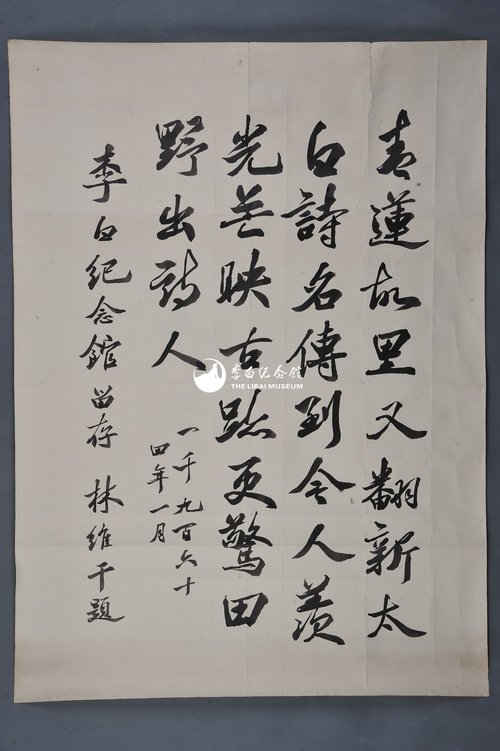 青蓮故里又翻新太
白詩名傳到今人羨
光芒映古跡更驚田
野出詩人
一千九百六十
四年一月
李白纪念館留存 林維干題
李白纪念館
THE LIBAI MUSEUM